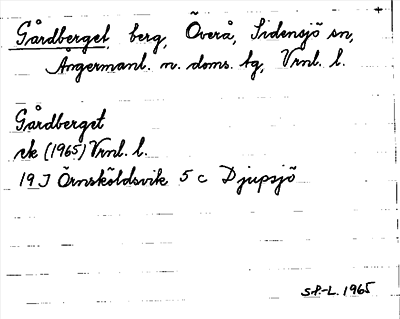 Gårdberget, berg, Överå, Sidensjö sn,
Ångermanl. n. doms. tg, Vrnl. l.
Gårdberget
ek (1965) Vrnl. l.
19 J Örnsköldsvik 5 c Djupsjö
S.P.-L. 1965